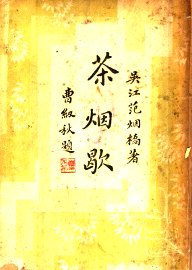 吳江范烟橋著
茶烟歇
曹叔秋題